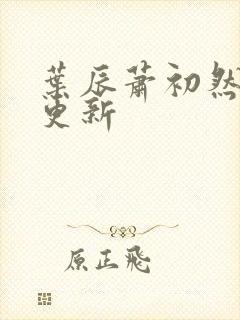 葉辰蕭初然
更新
原正飛